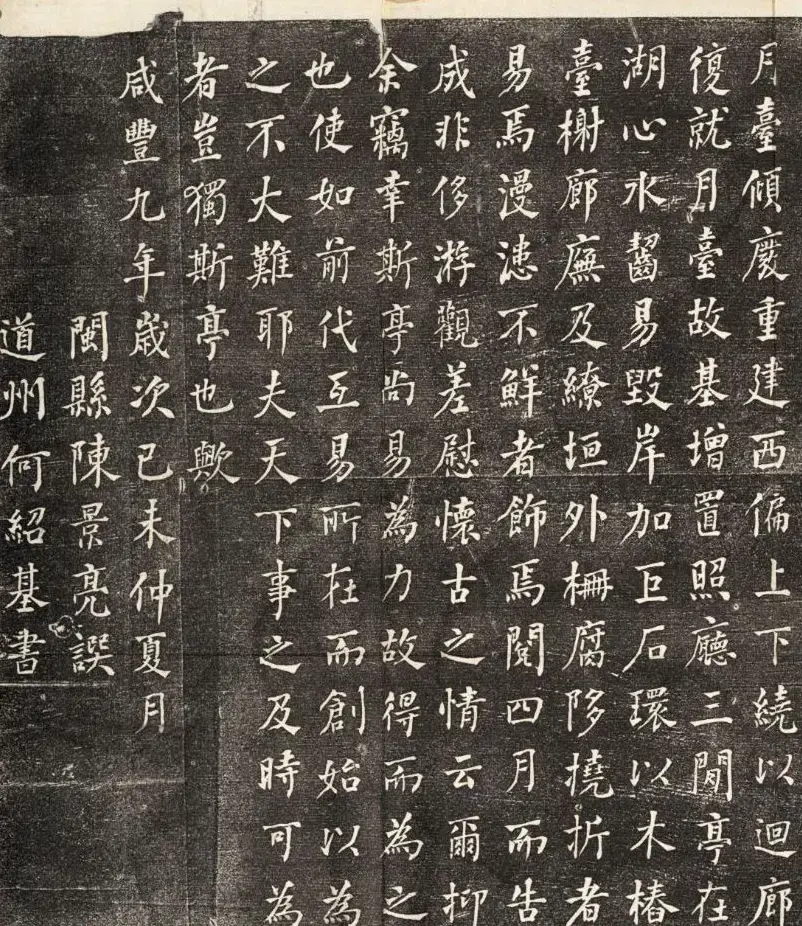 月臺傾廢重建西偏上下繞以迴廊
復就月臺故基增置照廳三間亭在
湖心水齧易毀岸加巨石環以木樁
臺榭廊廡及繚垣外柵腐陊撓折者
易焉漫漶不鮮者飾焉閱四月而告
成非侈游觀差慰懷古之情云爾抑
余竊幸斯亭尚易為力故得而為之
也使如前代互易所在而創始以為
之不大難耶夫天下事之及時可為
者豈獨斯亭也歟
咸豐九年歲次己未仲夏月
閩縣陳景亮譔
道州何紹基書